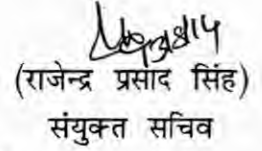 (राजेन्द्र प्रसाद सिंह)
संयुक्त सचिव